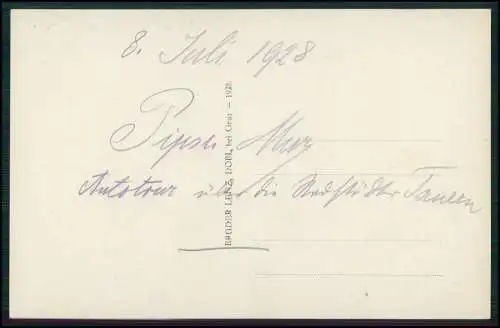 8. Juli 1928
Pipsi
Autotour über die Radstädter Tauern
BRÜDER LENZ, DOBL, bei Graz – 1928